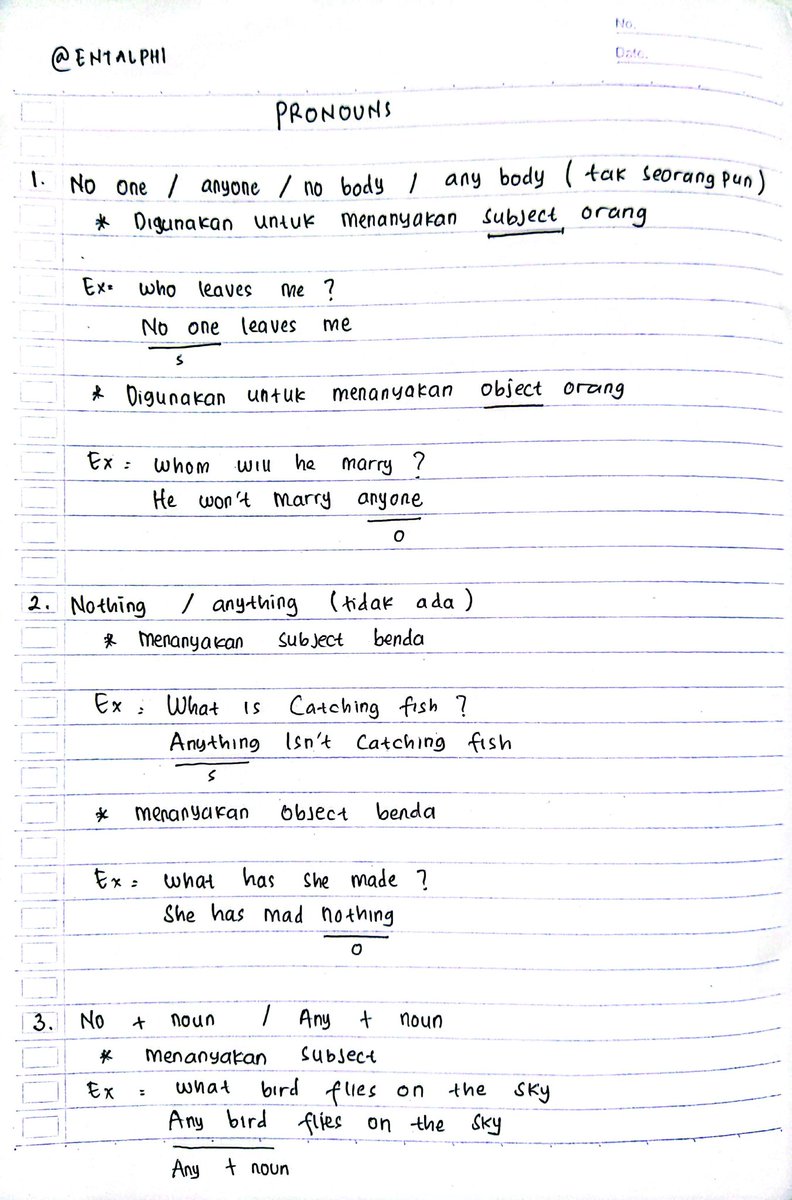 No.
@ENTALPHI
Date.
PRONOUNS
1. No one / anyone / no body / any body ( tak seorang pun )
* Digunakan untuk menanyakan subject orang
Ex= who leaves me ?
No one leaves me
S
* Digunakan untuk menanyakan object orang
Ex = whom will he marry ?
He won't marry anyone
O
2. Nothing / anything (tidak ada)
* menanyakan subject benda
Ex = What is Catching fish ?
Anything Isn't Catching fish
S
* menanyakan Object benda
Ex = what has she made ?
She has mad nothing
O
3. No + noun / Any + noun
* menanyakan subject
Ex = what bird flies on the sky
Any bird flies on the sky
Any + noun